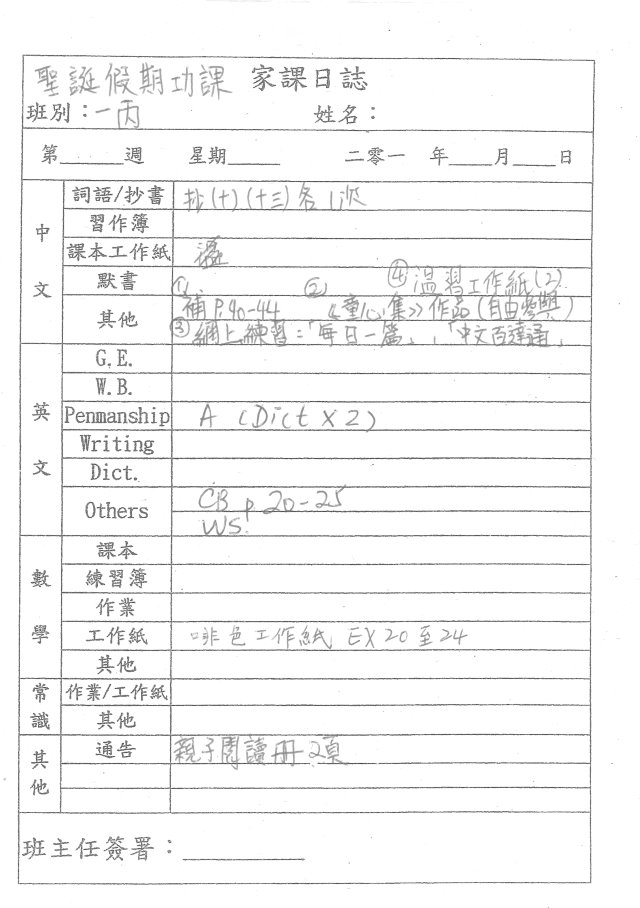 聖誕假期功課 家課日誌
班別：一丙 姓名：
第______週 星期_____ 二零一 年____月____日
中文
詞語/抄書 抄(十)(十三)各1次
習作簿
課本工作紙
默書 ① ② ④溫習工作紙(2)
其他 補P.40-44 《童心集》作品(自由參與)
③網上練習：「每日一篇」，「中文百達通」
英文
G.E.
W.B.
Penmanship A (Dict X 2)
Writing
Dict.
Others CB p 20-25
WS.
數學
課本
練習簿
作業
工作紙 啡色工作紙 EX 20 至 24
其他
常識
作業/工作紙
其他
其他
通告 親子閱讀冊 2頁
班主任簽署：__________